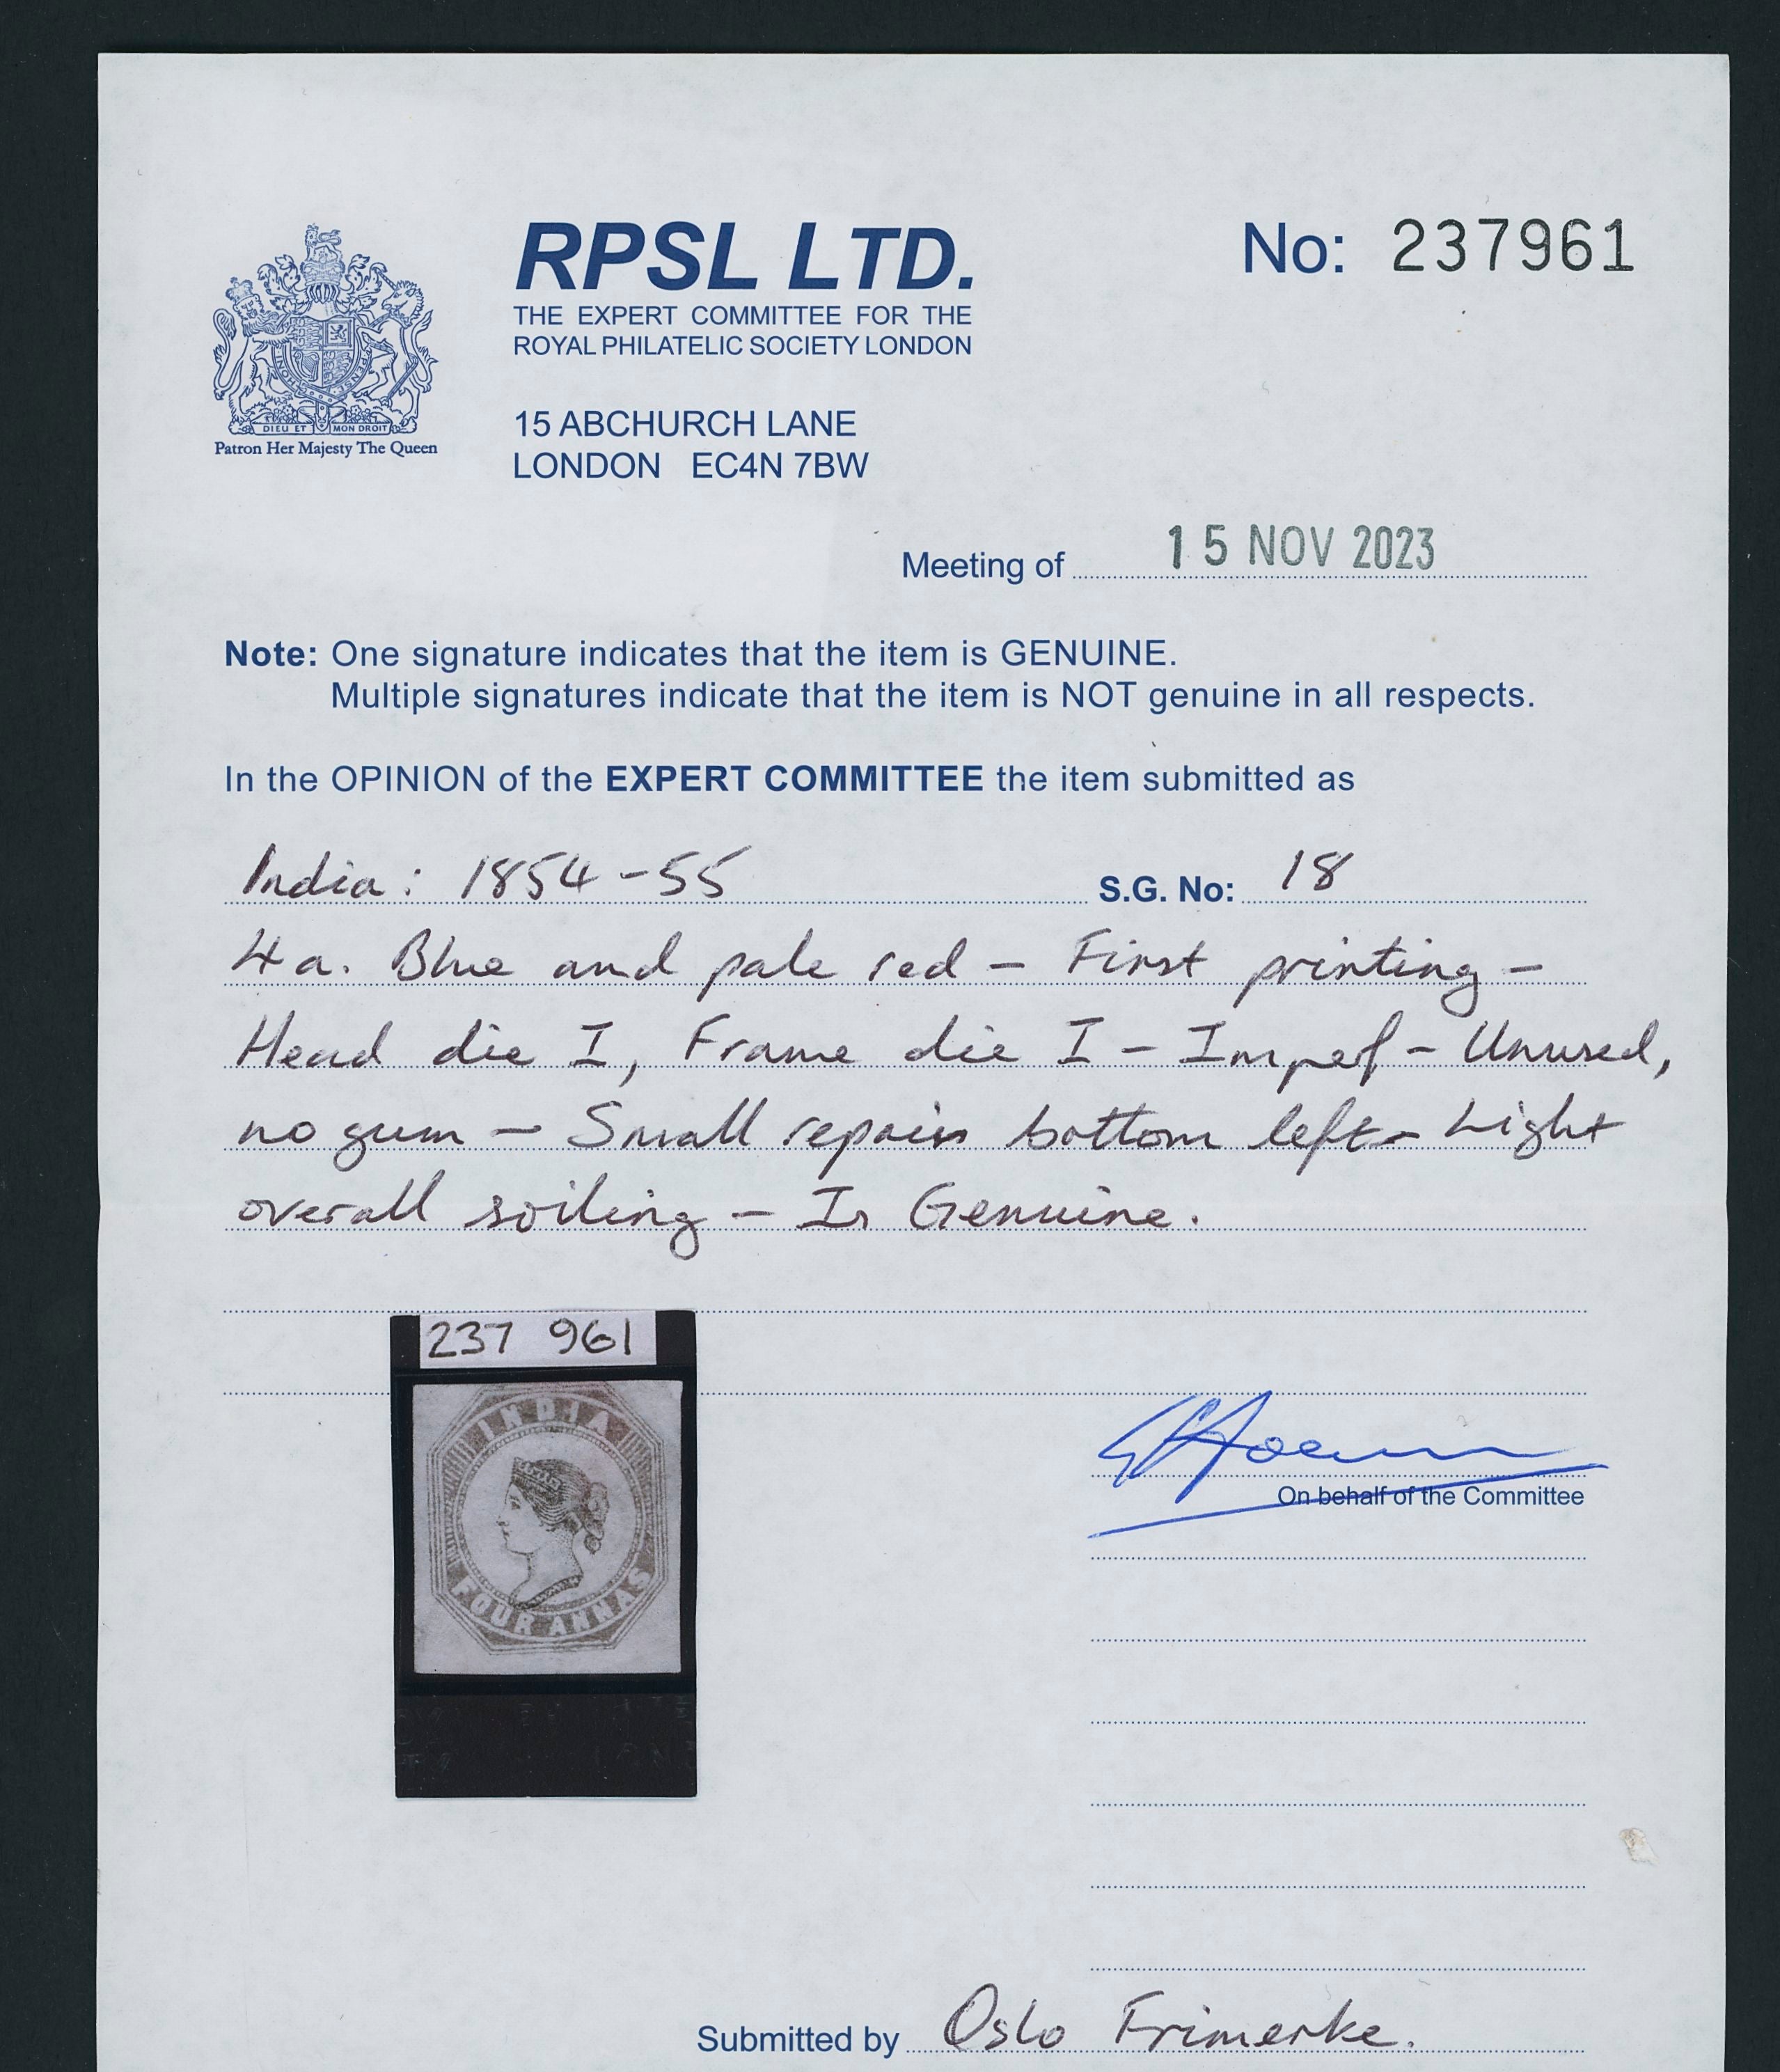 RPSL LTD.
THE EXPERT COMMITTEE FOR THE
ROYAL PHILATELIC SOCIETY LONDON
15 ABCHURCH LANE
LONDON EC4N 7BW
DIEU ET MON DROIT
Patron Her Majesty The Queen
No: 237961
Meeting of 15 NOV 2023
Note: One signature indicates that the item is GENUINE.
Multiple signatures indicate that the item is NOT genuine in all respects.
In the OPINION of the EXPERT COMMITTEE the item submitted as
India: 1854-55 S.G. No: 18
4a. Blue and pale red - First printing -
Head die I, Frame die I - Imperf - Unused,
no gum - Small repairs bottom left - Light
overall soiling - Is Genuine.
237 961
INDIA
FOUR ANNAS
On behalf of the Committee
Submitted by Oslo Frimerke.